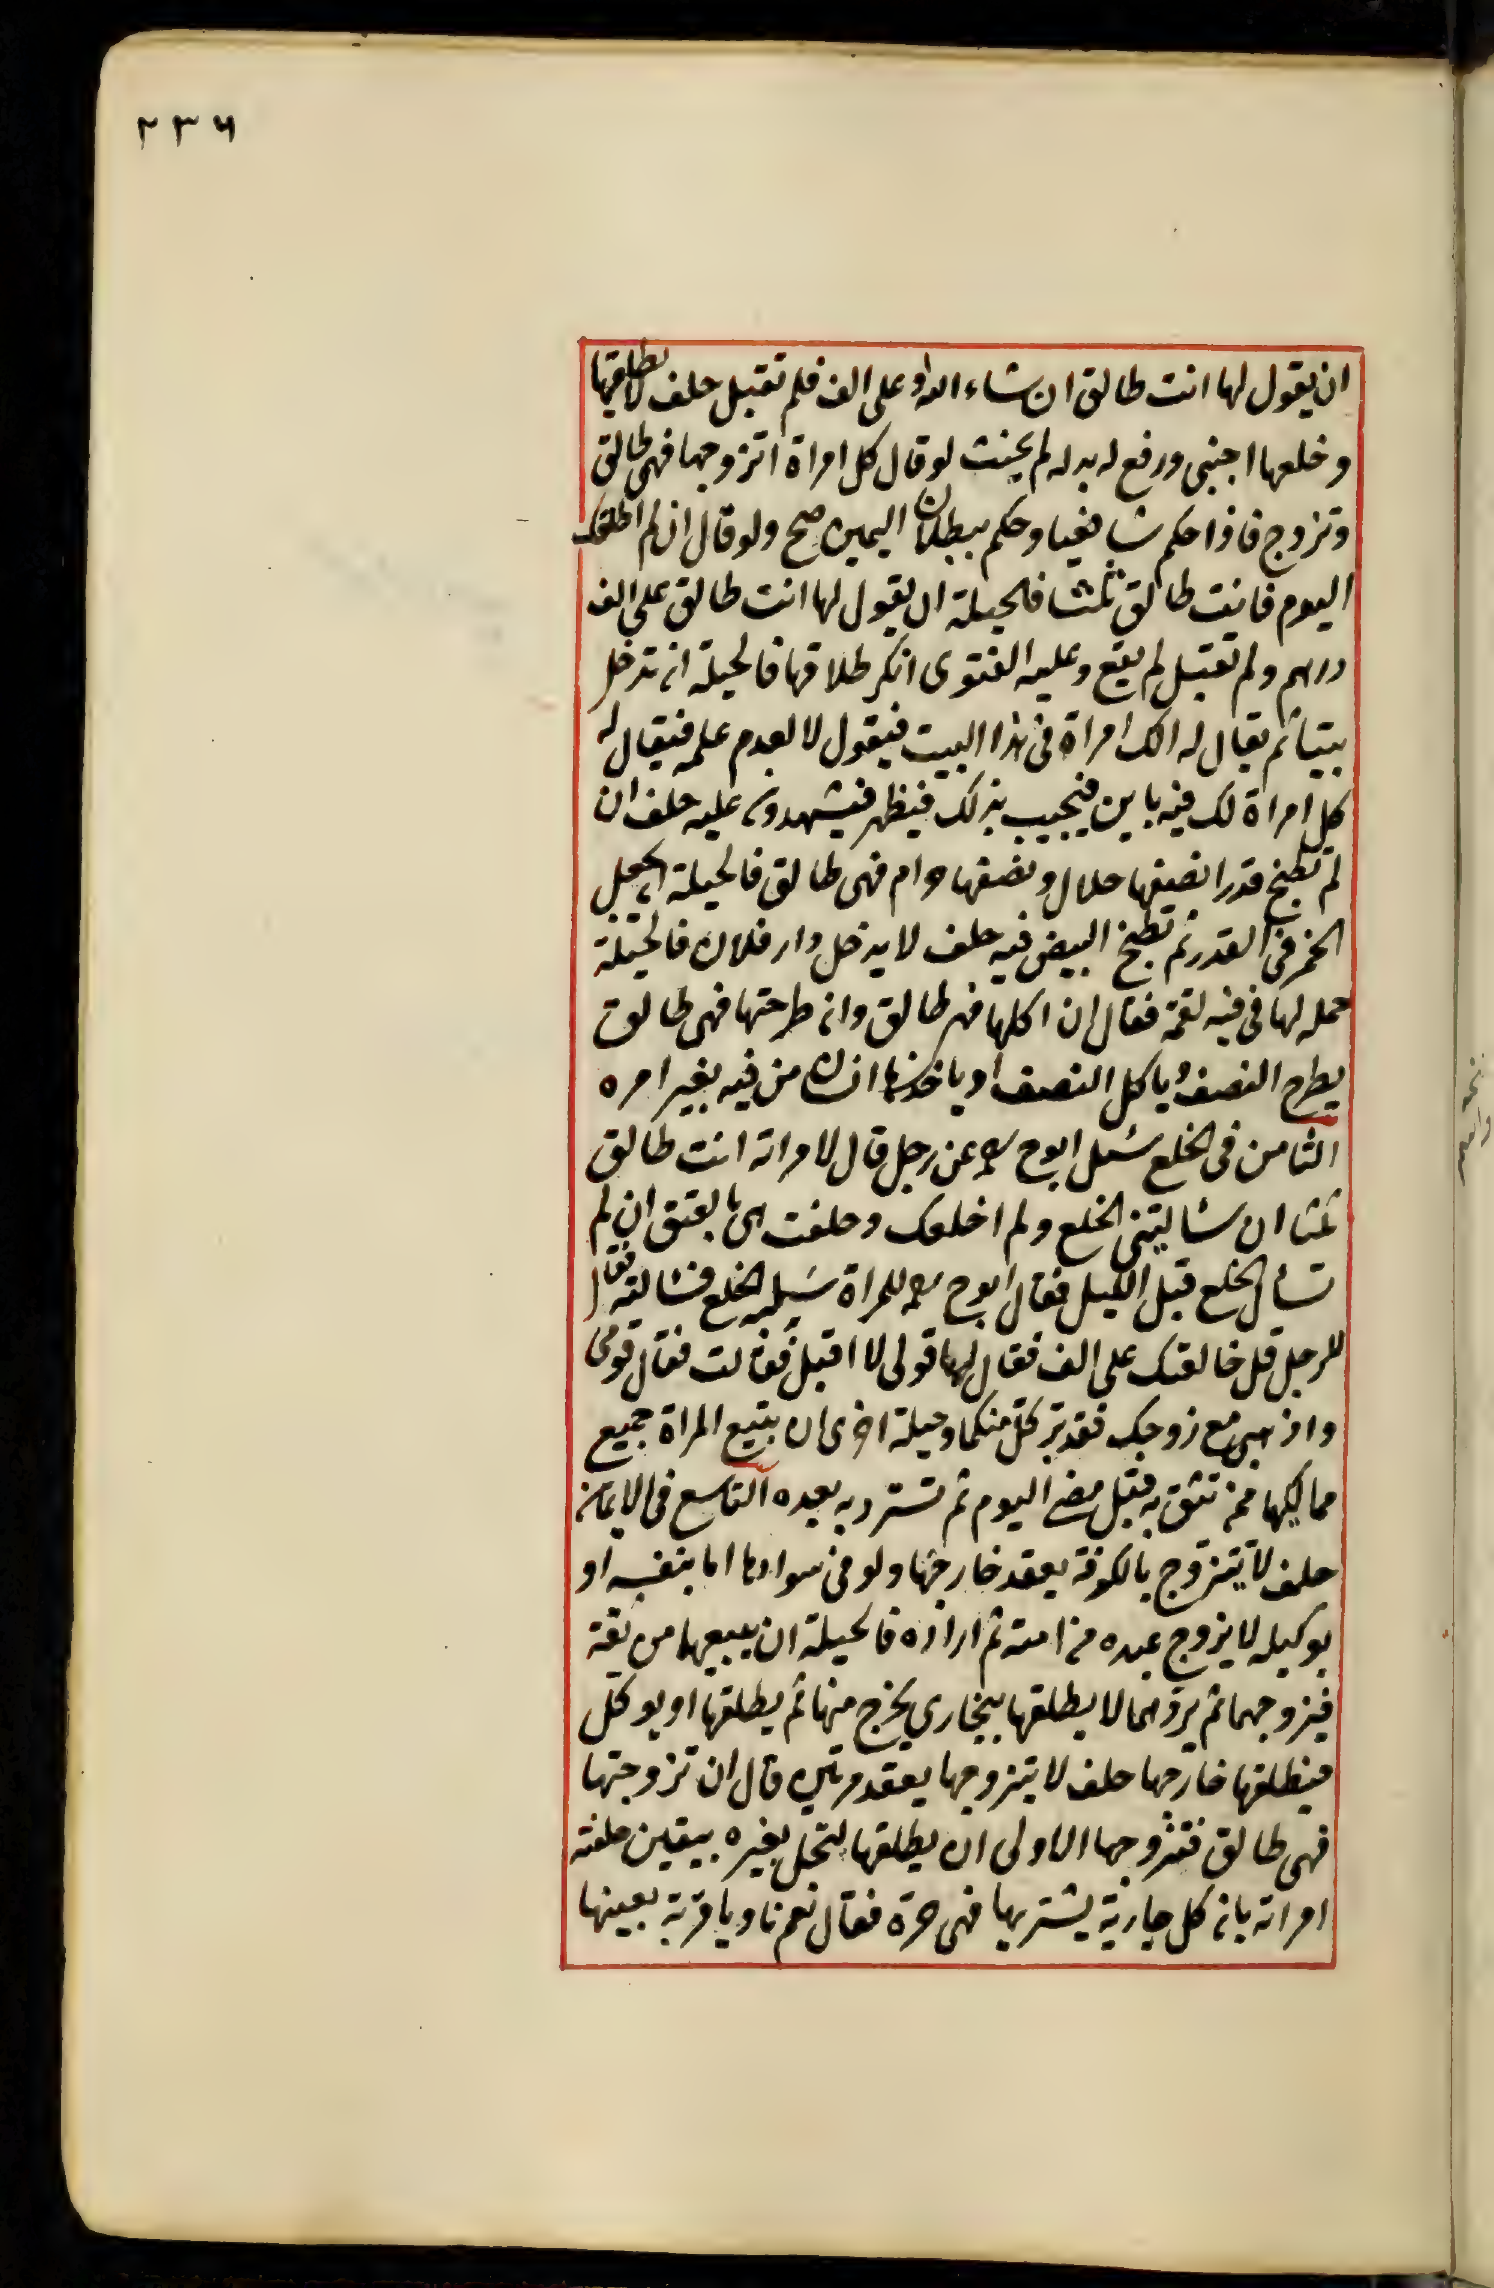 ۲۳۶
ان يقول لها انت طالق ان شاء الله او على الف فلم تقبل حلف لا يطلقها
وخلعها اجنبي ودفع له بدله لم يحنث لو قال كل امراة اتزوجها فهى طالق
وتزوج فاذا حكم شافعيا وحكم ببطلان اليمين صح ولو قال ان لم اطلقك
اليوم فانت طالق ثلثا فالحيلة ان يقول لها انت طالق على الف
درهم ولم تقبل لم يقع وعليه الفتوى انكر طلاقها فالحيلة ان تدخل
بيتا ثم يقال له الك امراة فى هذا البيت فيقول لا لعدم علمه فيقال له
كل امراة لك فيه باين فيجيب بذلك فيظهر فيشهدون عليه حلف ان
لم تطبخ قدرا نصفها حلال ونصفها حرام فهى طالق فالحيلة ان تجعل
الخمر فى القدر ثم تطبخ البيض فيه حلف لا يدخل دار فلان فالحيلة
حمله لها فى فيه لقمة فقال ان اكلها فهى طالق وان طرحتها فهى طالق
يطرح النصف وياكل النصف او ياخذها انسان من فيه بغير امره
الثامن فى الخلع سئل ابوح رح عن رجل قال لامراته انت طالق
ثلثا ان سالتينى الخلع ولم اخلعك وحلفت هى بالعتق ان لم
تسأل الخلع قبل الليل فقال ابوح رح للمراة سليه الخلع فسالته فقال
للرجل قل خالعتك على الف فقال لها قولى لا اقبل فقالت فقال قومى
واذهبى مع زوجك فقد بر كل منكما وحيلة اخرى ان تبيع المراة جميع
مماليكها ممن تثق به قبل مضى اليوم ثم تسترد به بعده التاسع فى الايمان
حلف لا يتزوج بالكوفة يعقد خارجها ولو فى سوادها اما بنفسه او
بوكيله لا يزوج عبده من امته ثم اراده فالحيلة ان يبيعهما من ثقة
فيزوجهما ثم يردهما لا يطلقها ببخارى يخرج منها ثم يطلقها او يوكل
فيطلقها خارجها حلف لا يتزوجها يعقد مرتين قال ان تزوجتها
فهى طالق فتزوجها الاولى ان يطلقها لتحل بغيره بيقين حلفته
امراته بان كل جارية يشتريها فهى حرة فقال نعم ناويا قرية بعينها